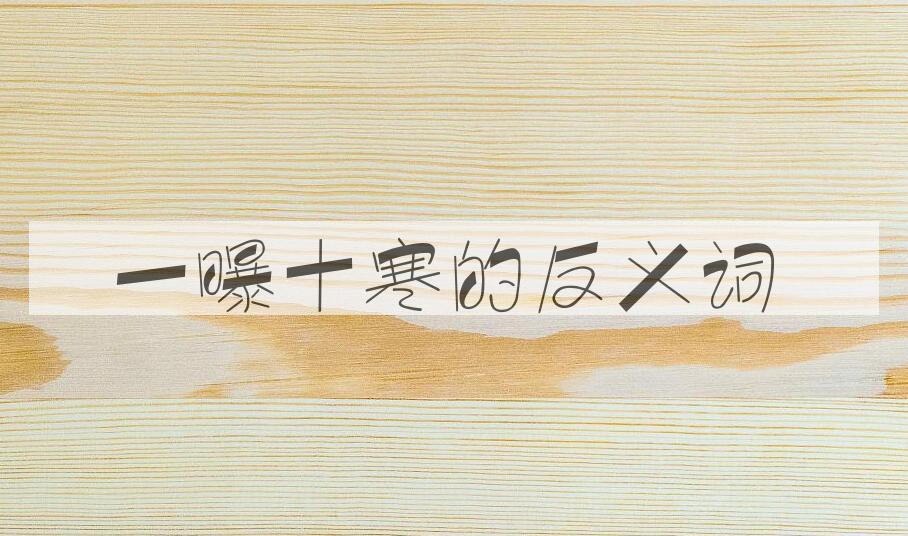 一曝十寒的反义词